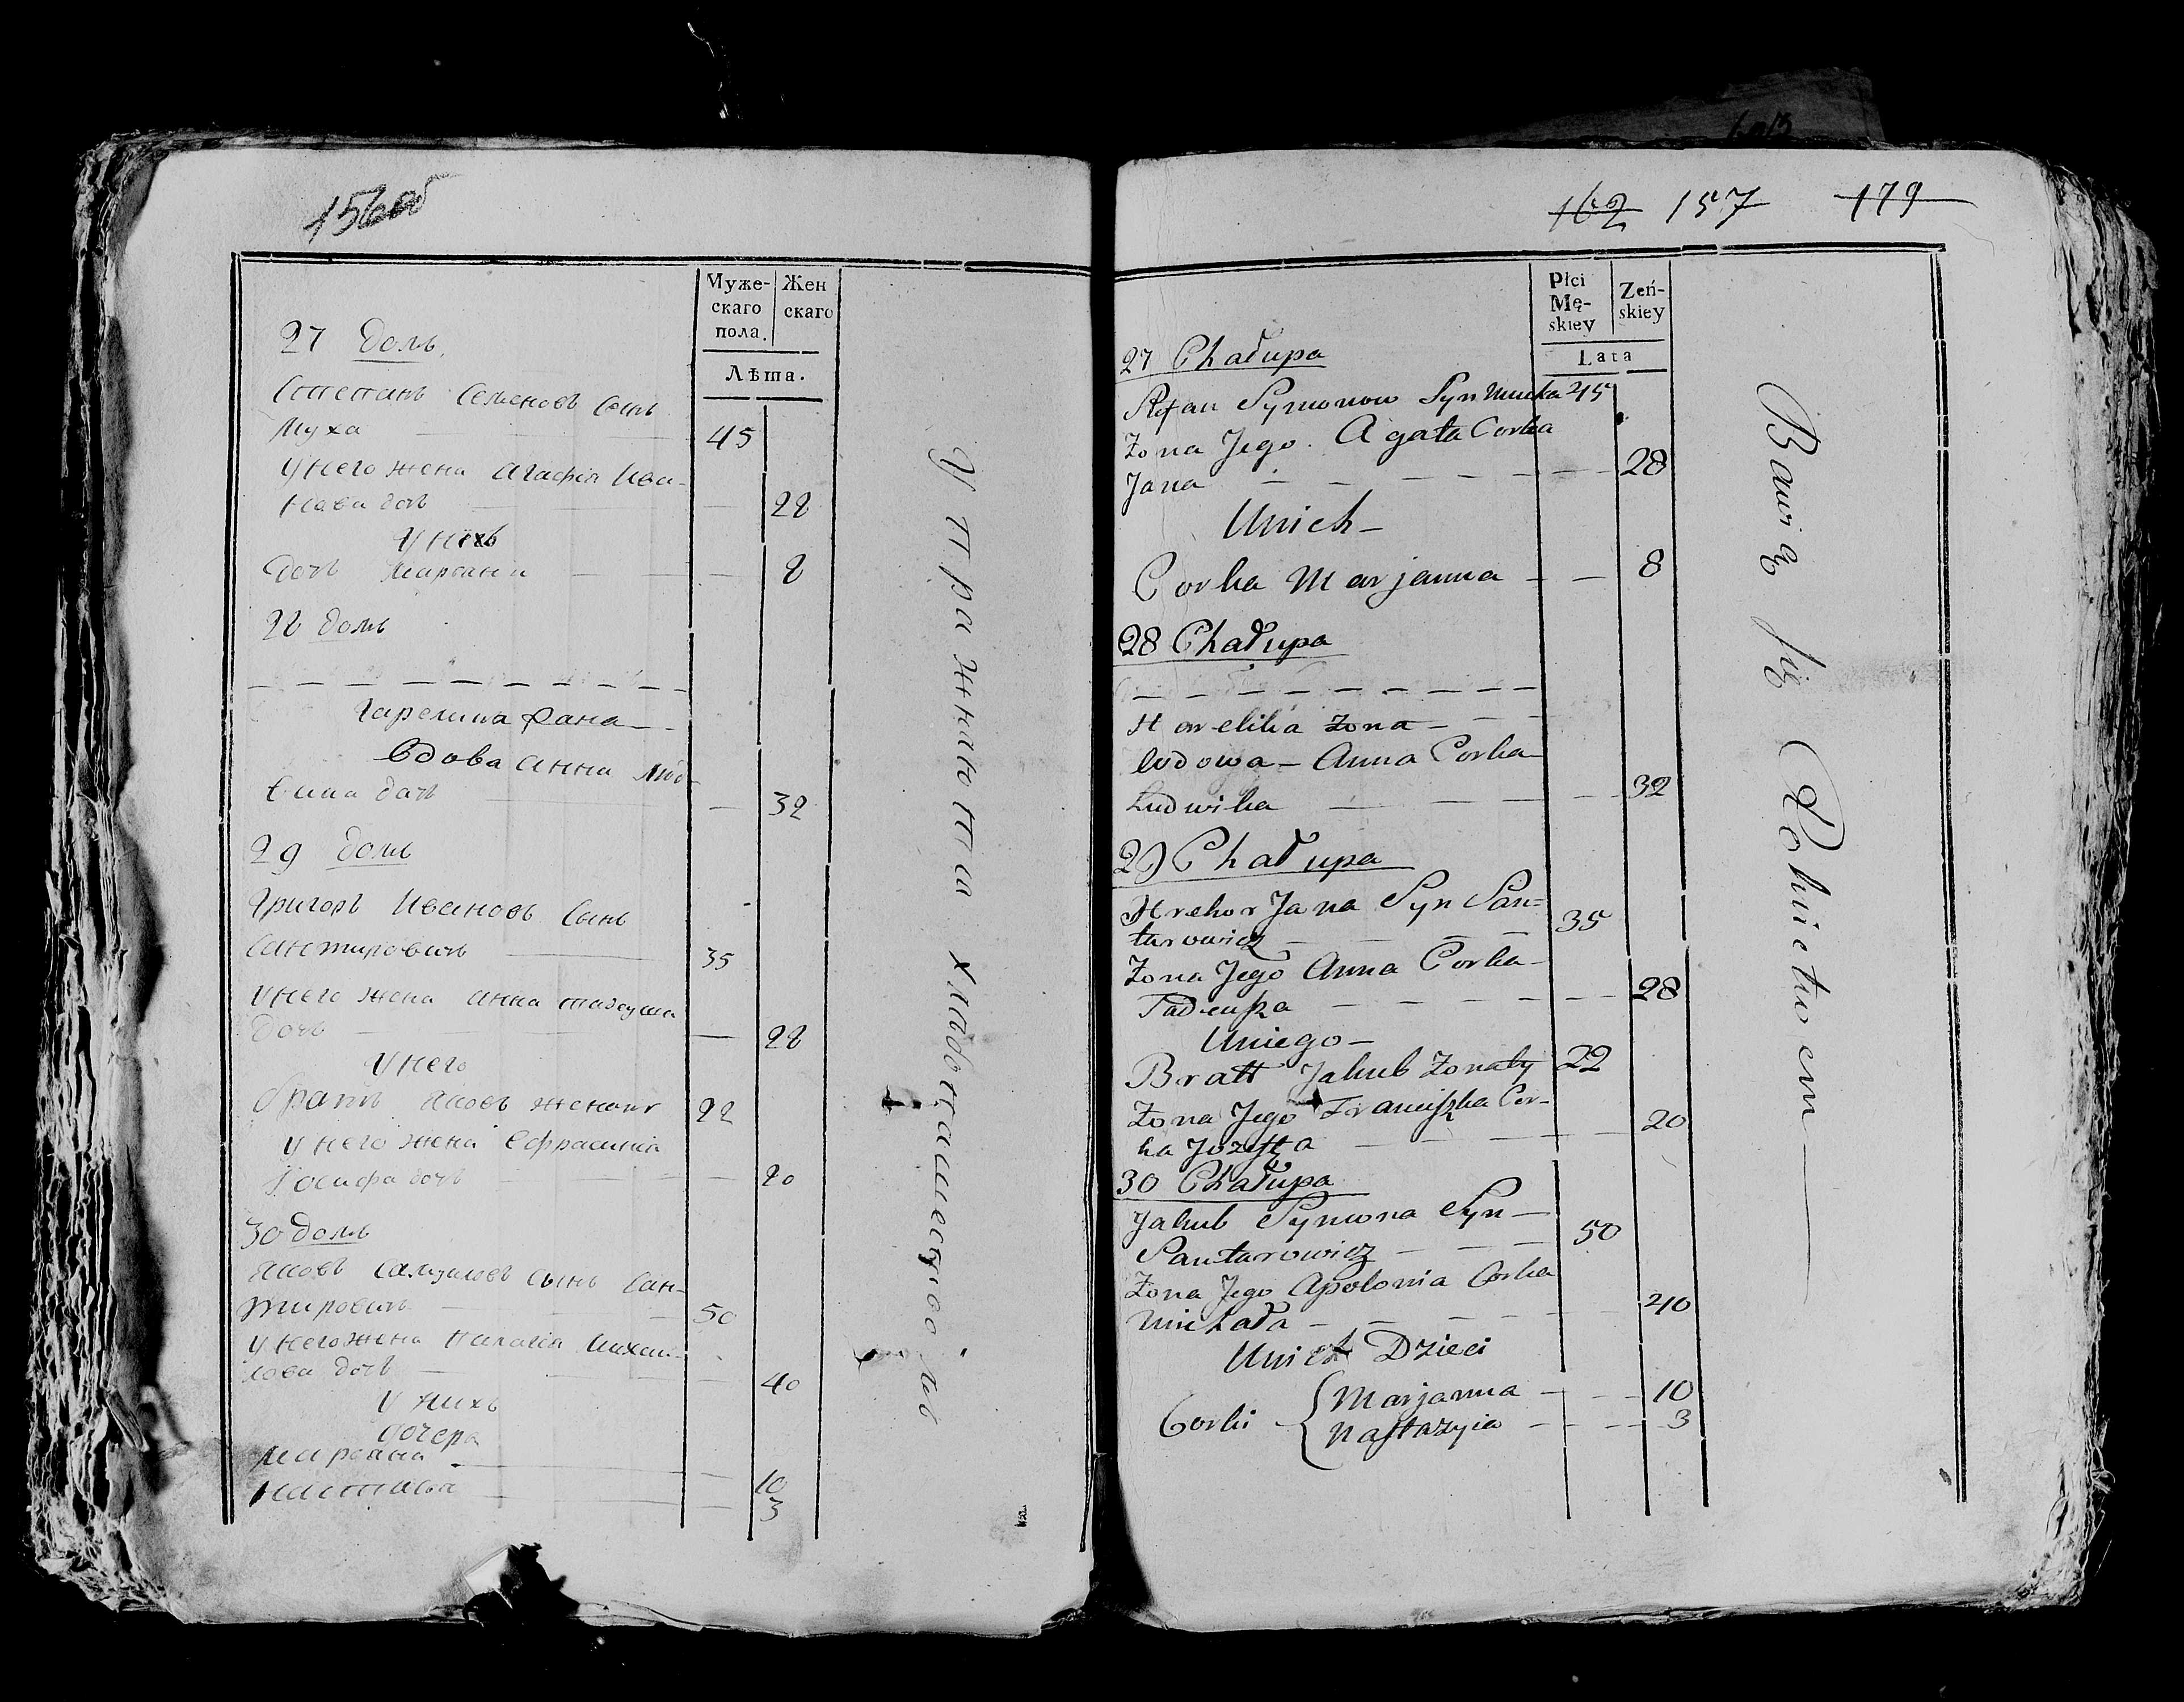 156 об
Муже-
скаго
пола.
Жен
скаго
Лѣта.
27 домъ
Степанъ Семеновъ сынъ
Муха 45
У него жена Агафія Ива-
нова дочь 28
У нихъ
дочь Марьяна 8
28 домъ
Гарелика жана
Вдова Анна Люд
вика дочь 32
29 домъ
Григоръ Ивановъ сынъ
Сантировичъ 35
У него жена Анна Тадеуша
дочь 28
У него
братъ Яковъ женатъ 22
У него жена Ефрасинія
Іосифа дочь 20
30 домъ
Яковъ сынъ Сан-
тировичъ 50
У него жена Михаи-
лова дочь 40
У нихъ
дочера
Марьяна 10
Настасья 3
Упражняются хлѣбопашествомъ
162 157 179
Płci
Mę-
skiey
Zeń-
skiey
Lata
27 Chałupa
Stefan Symonow Syn Mucha 45
Zona Jego Agata Corka
Jana 28
Unich
Corka Marjanna 8
28 Chałupa
Horelika Zona
wdowa Anna Corka
Ludwika 32
29 Chałupa
Hrehor Jana Syn San=
tarowicz 35
Zona Jego Anna Corka
Tadeusza 28
Uniego
Bratt Jakub Zonaty 22
Zona Jego Franciszka Cor-
ka Jozefa 20
30 Chałupa
Jakub Symona Syn
Santarowicz 50
Zona Jego Apolonia Corka
Michała 40
Unich Dzieci
Corki Marjanna 10
Nastazyia 3
Bawią się Rolnictwem